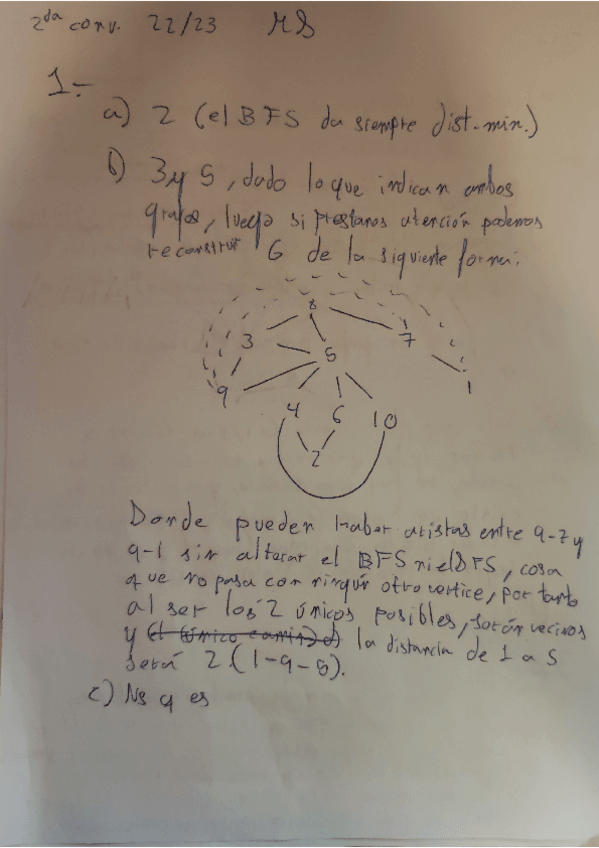 2da conv. 22/23 MD
1.-
a) 2 (el BFS da siempre dist. min.)
b) 3 y 5, dado lo que indican ambos
grafos, luego si prestamos atención podemos
reconstruir G de la siguiente forma:
8
3 7
5
9 1
4 6 10
2
Donde pueden haber aristas entre 9-7 y
9-1 sin alterar el BFS ni el DFS, cosa
que no pasa con ningún otro vertice, por tanto
al ser los 2 únicos posibles, serán vecinos
y la distancia de 1 a 5
será 2 (1-9-5).
c) Ns q es